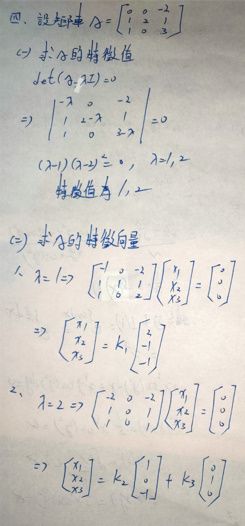 四、設矩陣 A = [0 0 -2; 1 2 1; 1 0 3]
(一) 求A的特徵值
det(A-λI)=0
⇒ |-λ 0 -2; 1 2-λ 1; 1 0 3-λ| = 0
(λ-1)(λ-2)² = 0, λ=1,2
特徵值為 1, 2
(二) 求A的特徵向量
1、λ=1 ⇒ [-1 0 -2; 1 1 1; 1 0 2][x₁; x₂; x₃] = [0; 0; 0]
⇒ [x₁; x₂; x₃] = k₁[2; -1; -1]
2、λ=2 ⇒ [-2 0 -2; 1 0 1; 1 0 1][x₁; x₂; x₃] = [0; 0; 0]
⇒ [x₁; x₂; x₃] = k₂[1; 0; -1] + k₃[0; 1; 0]